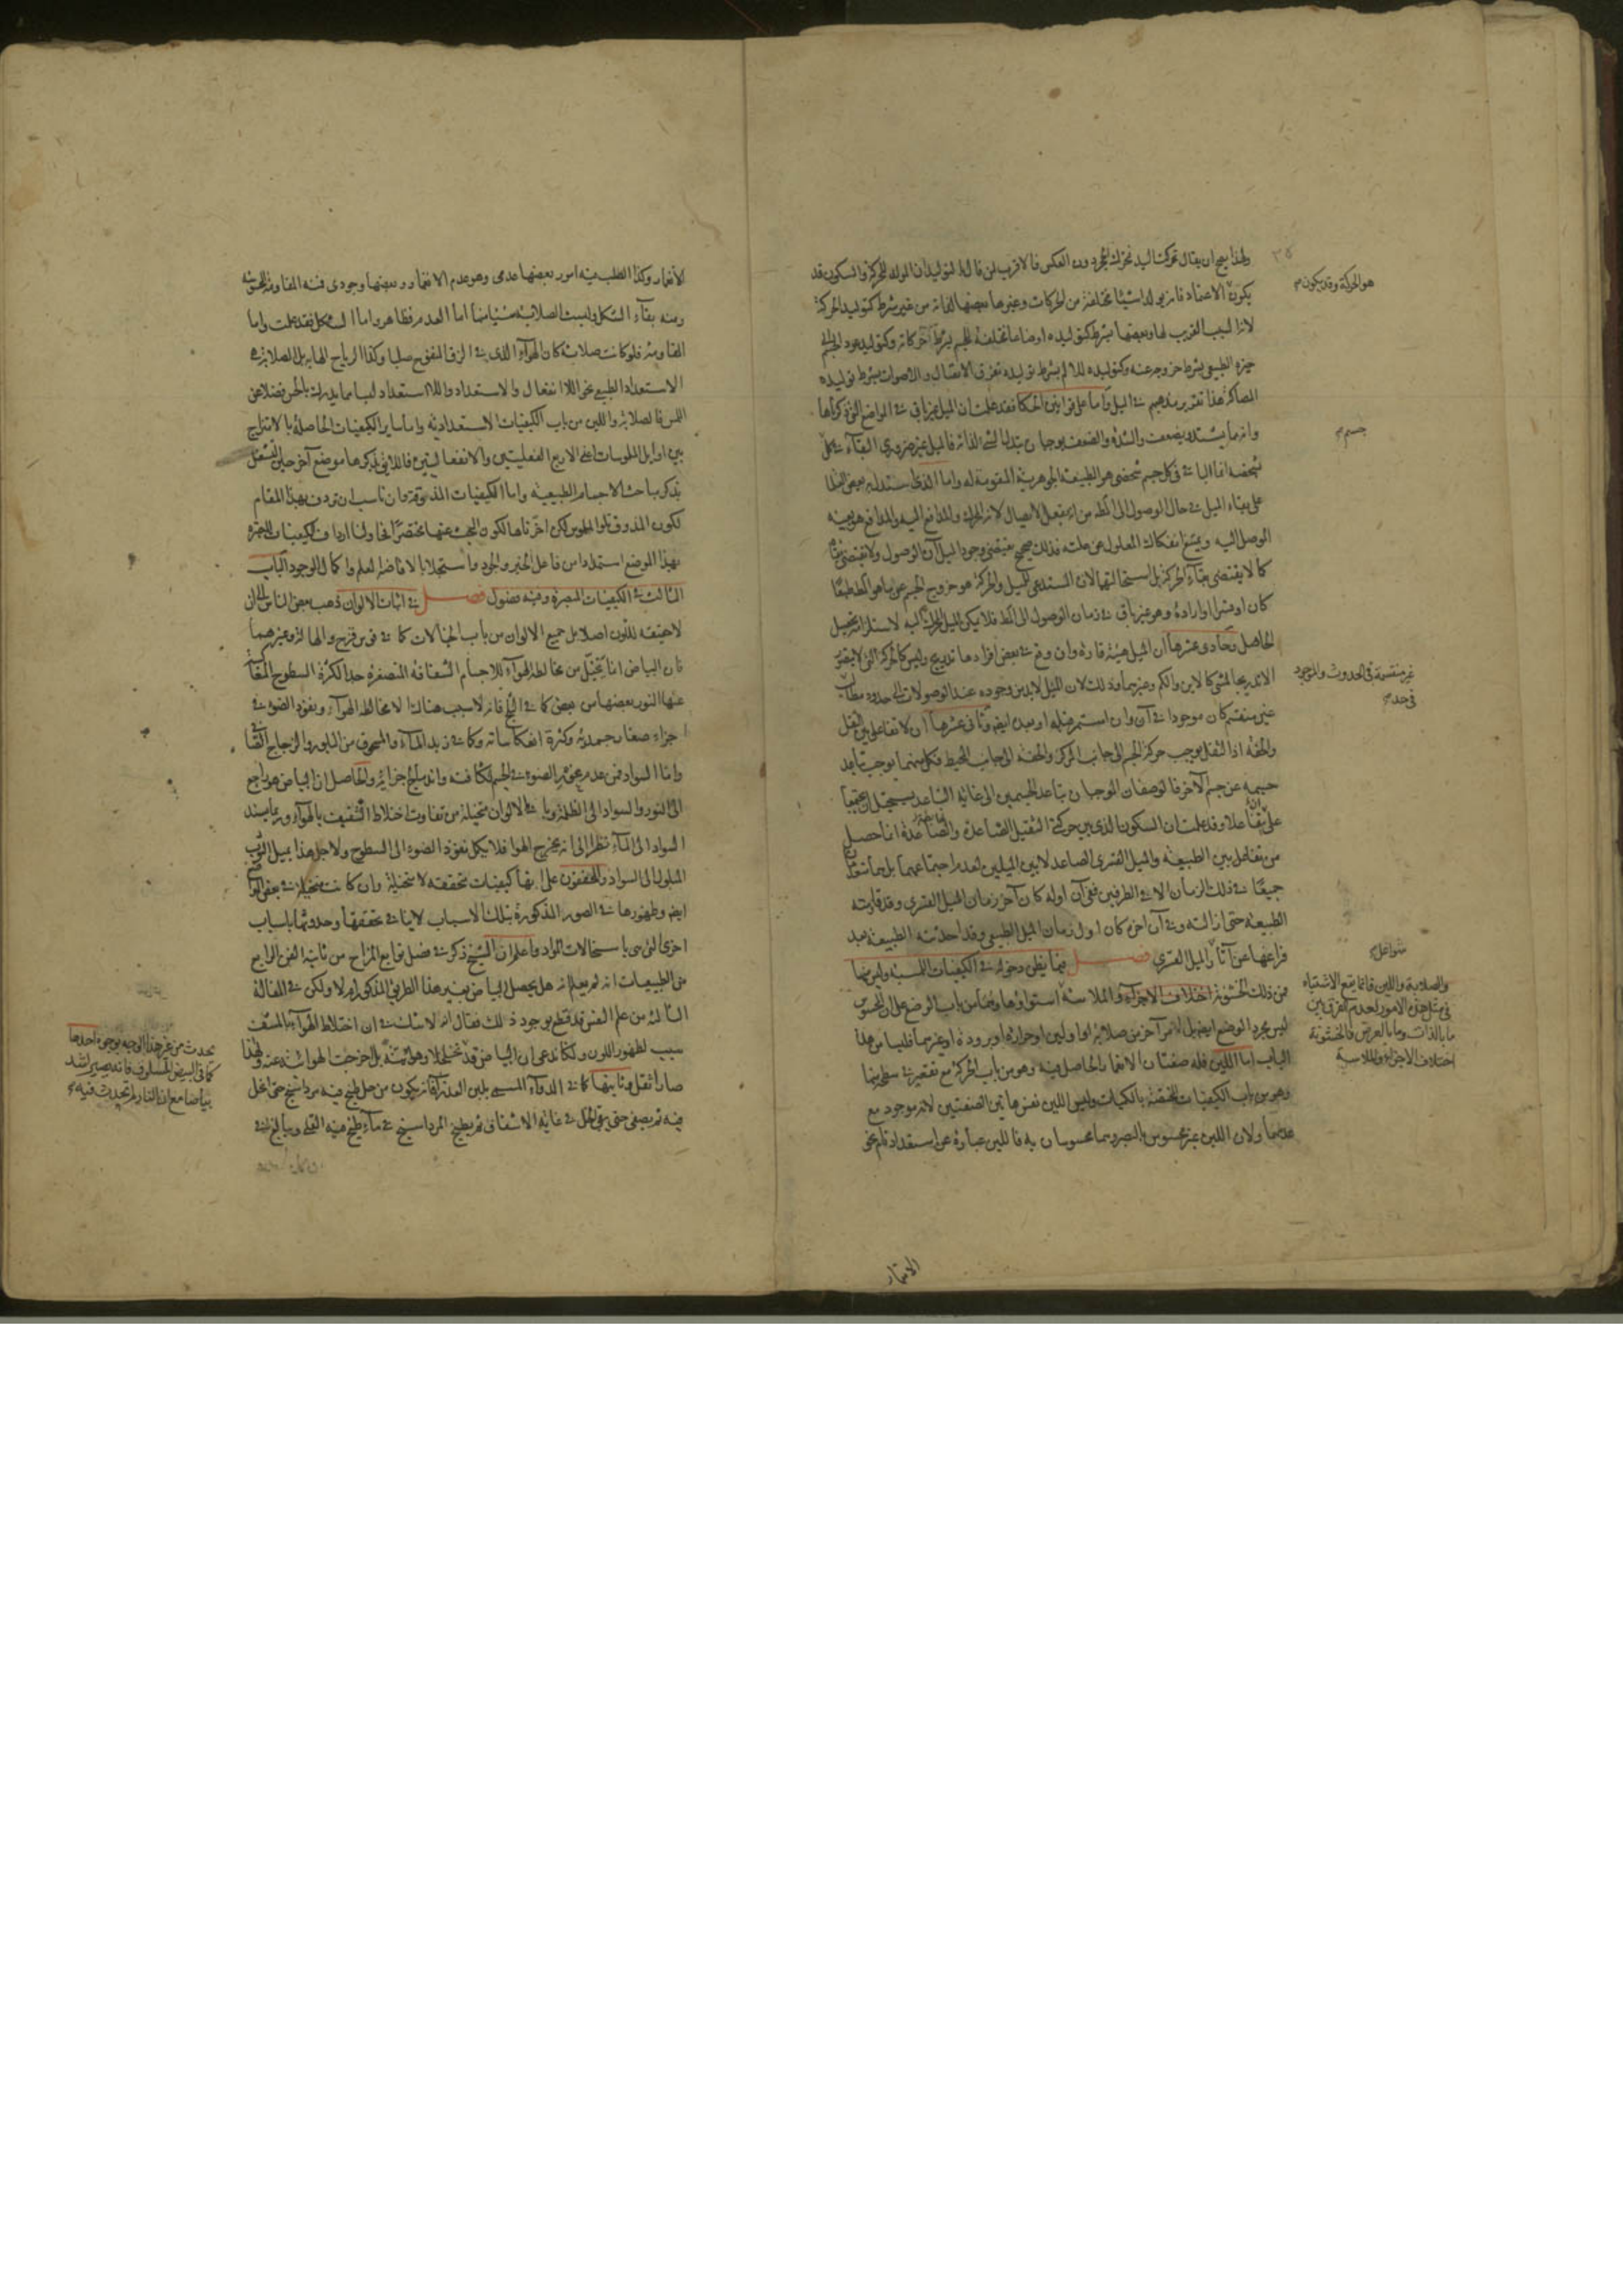 ٣٥
ولهذا يصح ان يقال تحركت اليد فتحرك الحجر دون العكس فالاقرب لمن قال بالتوليد ان المولد للحركة والسكون قد
هو الحركة وقد يكون م
يكون الاعتماد فانه يولد اشياء مختلفة من الحركات وغيرها بعضها لذاته من غير شرط كتوليد الحركة
لانه السبب القريب لها وبعضها بشرط كتوليده اوضاعا مختلفة للجسم بشرط حركاته وكتوليده عود الجسم الى
حيزه الطبيعي بشرط خروجه عنه وكتوليده للالم بشرط توليده تفرق الاتصال والاصوات بشرط توليده
المصاكة هذا تقرير مذهبهم في الميل واما على قوانين الحكماء فقد علمت ان الميل غير باق في المواضع التي ذكرناها
وانه مما يشتد ويضعف والشدة والضعف يوجبان تبدلا لشيء الذات فالميل غير ضروري البقاء في كل
جسم م
شخصه انما الباقي في كل جسم شخصي هو الطبيعة الجوهرية المقومة له واما الذي استدل به بعض الفضلاء
على بقاء الميل في حال الوصول الى المطلوب من انه يفعل الايصال لانه المحرك والدافع اليه والمدافع هو بعينه
الموصل اليه ويمتنع انفكاك المعلول عن علته فذلك صحيح فيقتضي وجود الميل آن الوصول ولا يقتضي بقاءه
كما لا يقتضي بقاء الحركة بل استحالتهما لان المستدعي للميل والحركة هو خروج الجسم عن ما هو المطلوب طبعا
كان او قسرا او ارادة وهو غير باق في زمان الوصول الى المطلوب فلا يمكن الميل المحرك اليه لاستلزامه تحصيل
الحاصل وحادي عشرها ان الميل هيئة قارة وان وقع في بعض افرادها تدريج وليس كالحركة التي لا يتصور
الا تدريجا لشيء كالاين والكم وغيرهما وذلك لان الميل لا بد من وجوده عند الوصولات الى حدود مطالب
غير منقسمة في الحدوث والموجود
في حد م
غير منقسم كان موجودا في آن وان استمر قبله او بعد ايضا وثاني عشرها ان لا تفاعل بين الثقل
والخفة اذ الثقل يوجب حركة الجسم الى جانب المركز والخفة الى جانب المحيط فكل منهما يوجب تباعد
جسمه عن جسم الآخر فالوصفان الموجبان بتباعد الجسمين الى غاية التباعد يستحيل ان يجتمعا
على تفاعلا وقد علمت ان السكون الذي بين حركة الثقيل الصاعدة والهابطة انما حصل
من تفاعل بين الطبيعة والميل القسري الصاعد لا بين الميلين لعدم اجتماعهما بل هما متفاوتان
جميعا في ذلك الزمان الا في الطرفين ففي آن اوله كان آخر زمان الميل القسري وقد قاومته
الطبيعة حتى ازالته وفي آن آخره كان اول زمان الميل الطبيعي وقد احدثته الطبيعة بعد
فراغها عن آثار الميل القسري فصل فيما يظن دخوله في الكيفيات اللمسية وليس منها
شواغل م
فمن ذلك الخشونة اختلاف الاجزاء والملاسة استواؤها وهما من باب الوضع على ان المحسوس
ليس مجرد الوضع ايضا بل لامر آخر من صلابة او لين او حرارة او برودة او غيرهما فليسا من هذا
والصلابة واللين فانما يقع الاشتباه
في مثل هذه الامور لعدم الفرق بين
ما بالذات وما بالعرض فالخشونة
اختلاف الاجزاء والملاسة
الباب اما اللين فله صفتان الانغماز الحاصل فيه وهو من باب الحركة مع تقعير في سطحهما
وهو من باب الكيفيات المختصة بالكميات وليس اللين نفس هاتين الصفتين لانه موجود مع
عدمهما ولان اللين غير محسوس بالبصر وهما محسوسان به فاللين عبارة عن استعداد تام نحو
الانغماز
الانغماز وكذا الصلب فيه امور بعضها عدمي وهو عدم الانغماز وبعضها وجودي فمنه المقاومة المحسوسة
ومنه بقاء الشكل وليست الصلابة شيئا منها اما العدم فظاهر واما الشكل فقد علمت واما
المقاومة فلو كانت صلابة كان الهواء الذي في الزق المنفوخ صلبا وكذا الرياح الهابة بل الصلابة هي
الاستعداد الطبيعي نحو اللا انفعال والاستعداد واللا استعداد ليسا مما يدرك بالحس فضلا عن
اللمس فالصلابة واللين من باب الكيفيات الاستعدادية واما ساير الكيفيات الحاصلة بالامتزاج
بين اوايل الملموسات اعني الاربع الفعليتين والانفعاليتين فاللايق بذكرها موضع آخر حين نشتغل
بذكر مباحث الاجسام الطبيعية واما الكيفيات المذوقة وان ناسب ان تردف بهذا المقام
لكون المذوق تلو الملموس لكن اخرناها لكون البحث عنها مختصرا فحاولنا ارداف الكيفيات المبصرة
بهذا الموضع استمدادا من فاعل الخير والجود واستجلابا لافاضة العلم واكمال الوجود الباب
الثالث في الكيفيات المبصرة وفيه فصول فصل في اثبات الالوان ذهب بعض الناس الى ان
لا حقيقة للون اصلا بل جميع الالوان من باب الخيالات كما في قوس قزح والهالة وغيرهما
فان البياض انما يتخيل من مخالطة الهواء للاجسام الشفافة المتصغرة جدا لكثرة السطوح المتعاكس
عنها النور بعضها من بعض كما في الثلج فانه لا سبب هناك الا مخالطة الهواء ونفوذ الضوء في
اجزاء صغار جمدية وكثرة انعكاساته وكما في زبد الماء والمسحوق من البلور والزجاج الشفاف
واما السواد فمن عدم غور الضوء في الجسم لكثافته واندماج اجزائه والحاصل ان البياض هو راجع
الى النور والسواد الى الظلمة وباقي الالوان متخيلة من تفاوت اختلاط الشفيف بالهواء وربما يسند
السواد الى الماء نظرا الى انه يخرج الهواء فلا يكمل نفوذ الضوء الى السطوح ولاجل هذا يميل الثوب
المبلول الى السواد والمحققون على انها كيفيات متحققة لا متخيلة وان كانت متخيلة في بعض المواضع
ايضا وظهورها في الصور المذكورة بتلك الاسباب لا ينافي تحققها وحدوثها باسباب
اخرى لشيء باستحالات المواد واعلم ان الشيخ ذكر في فصل توابع المزاج من ثانية الفن الرابع
من الطبيعيات انه لم يعلم انه هل يحصل البياض بغير هذا الطريق المذكور ام لا ولكن في المقالة
الثالثة من علم النفس قد قطع بوجود ذلك فقال انه لا شك في ان اختلاط الهواء بالمشف
سبب لظهور اللون ولكنا ندعي ان البياض قد
يحدث من غير هذا الوجه بوجوه احدها
كما في البيض المسلوق فانه يصير اشد
بياضا مع ان النار لم تحدث فيه م
تخلخلا وهوائية بل اخرجت الهوائية عنه ولهذا
صار اثقل وثانيها كما في الدواء المسمى بلبن العذراء فانه يكون من خل طبخ فيه مرداسنج حتى انحل
فيه ثم يصفى حتى يبقى الخل في غاية الاشفاف ثم يطبخ المرداسنج في ماء طبخ فيه القلي ويبالغ في